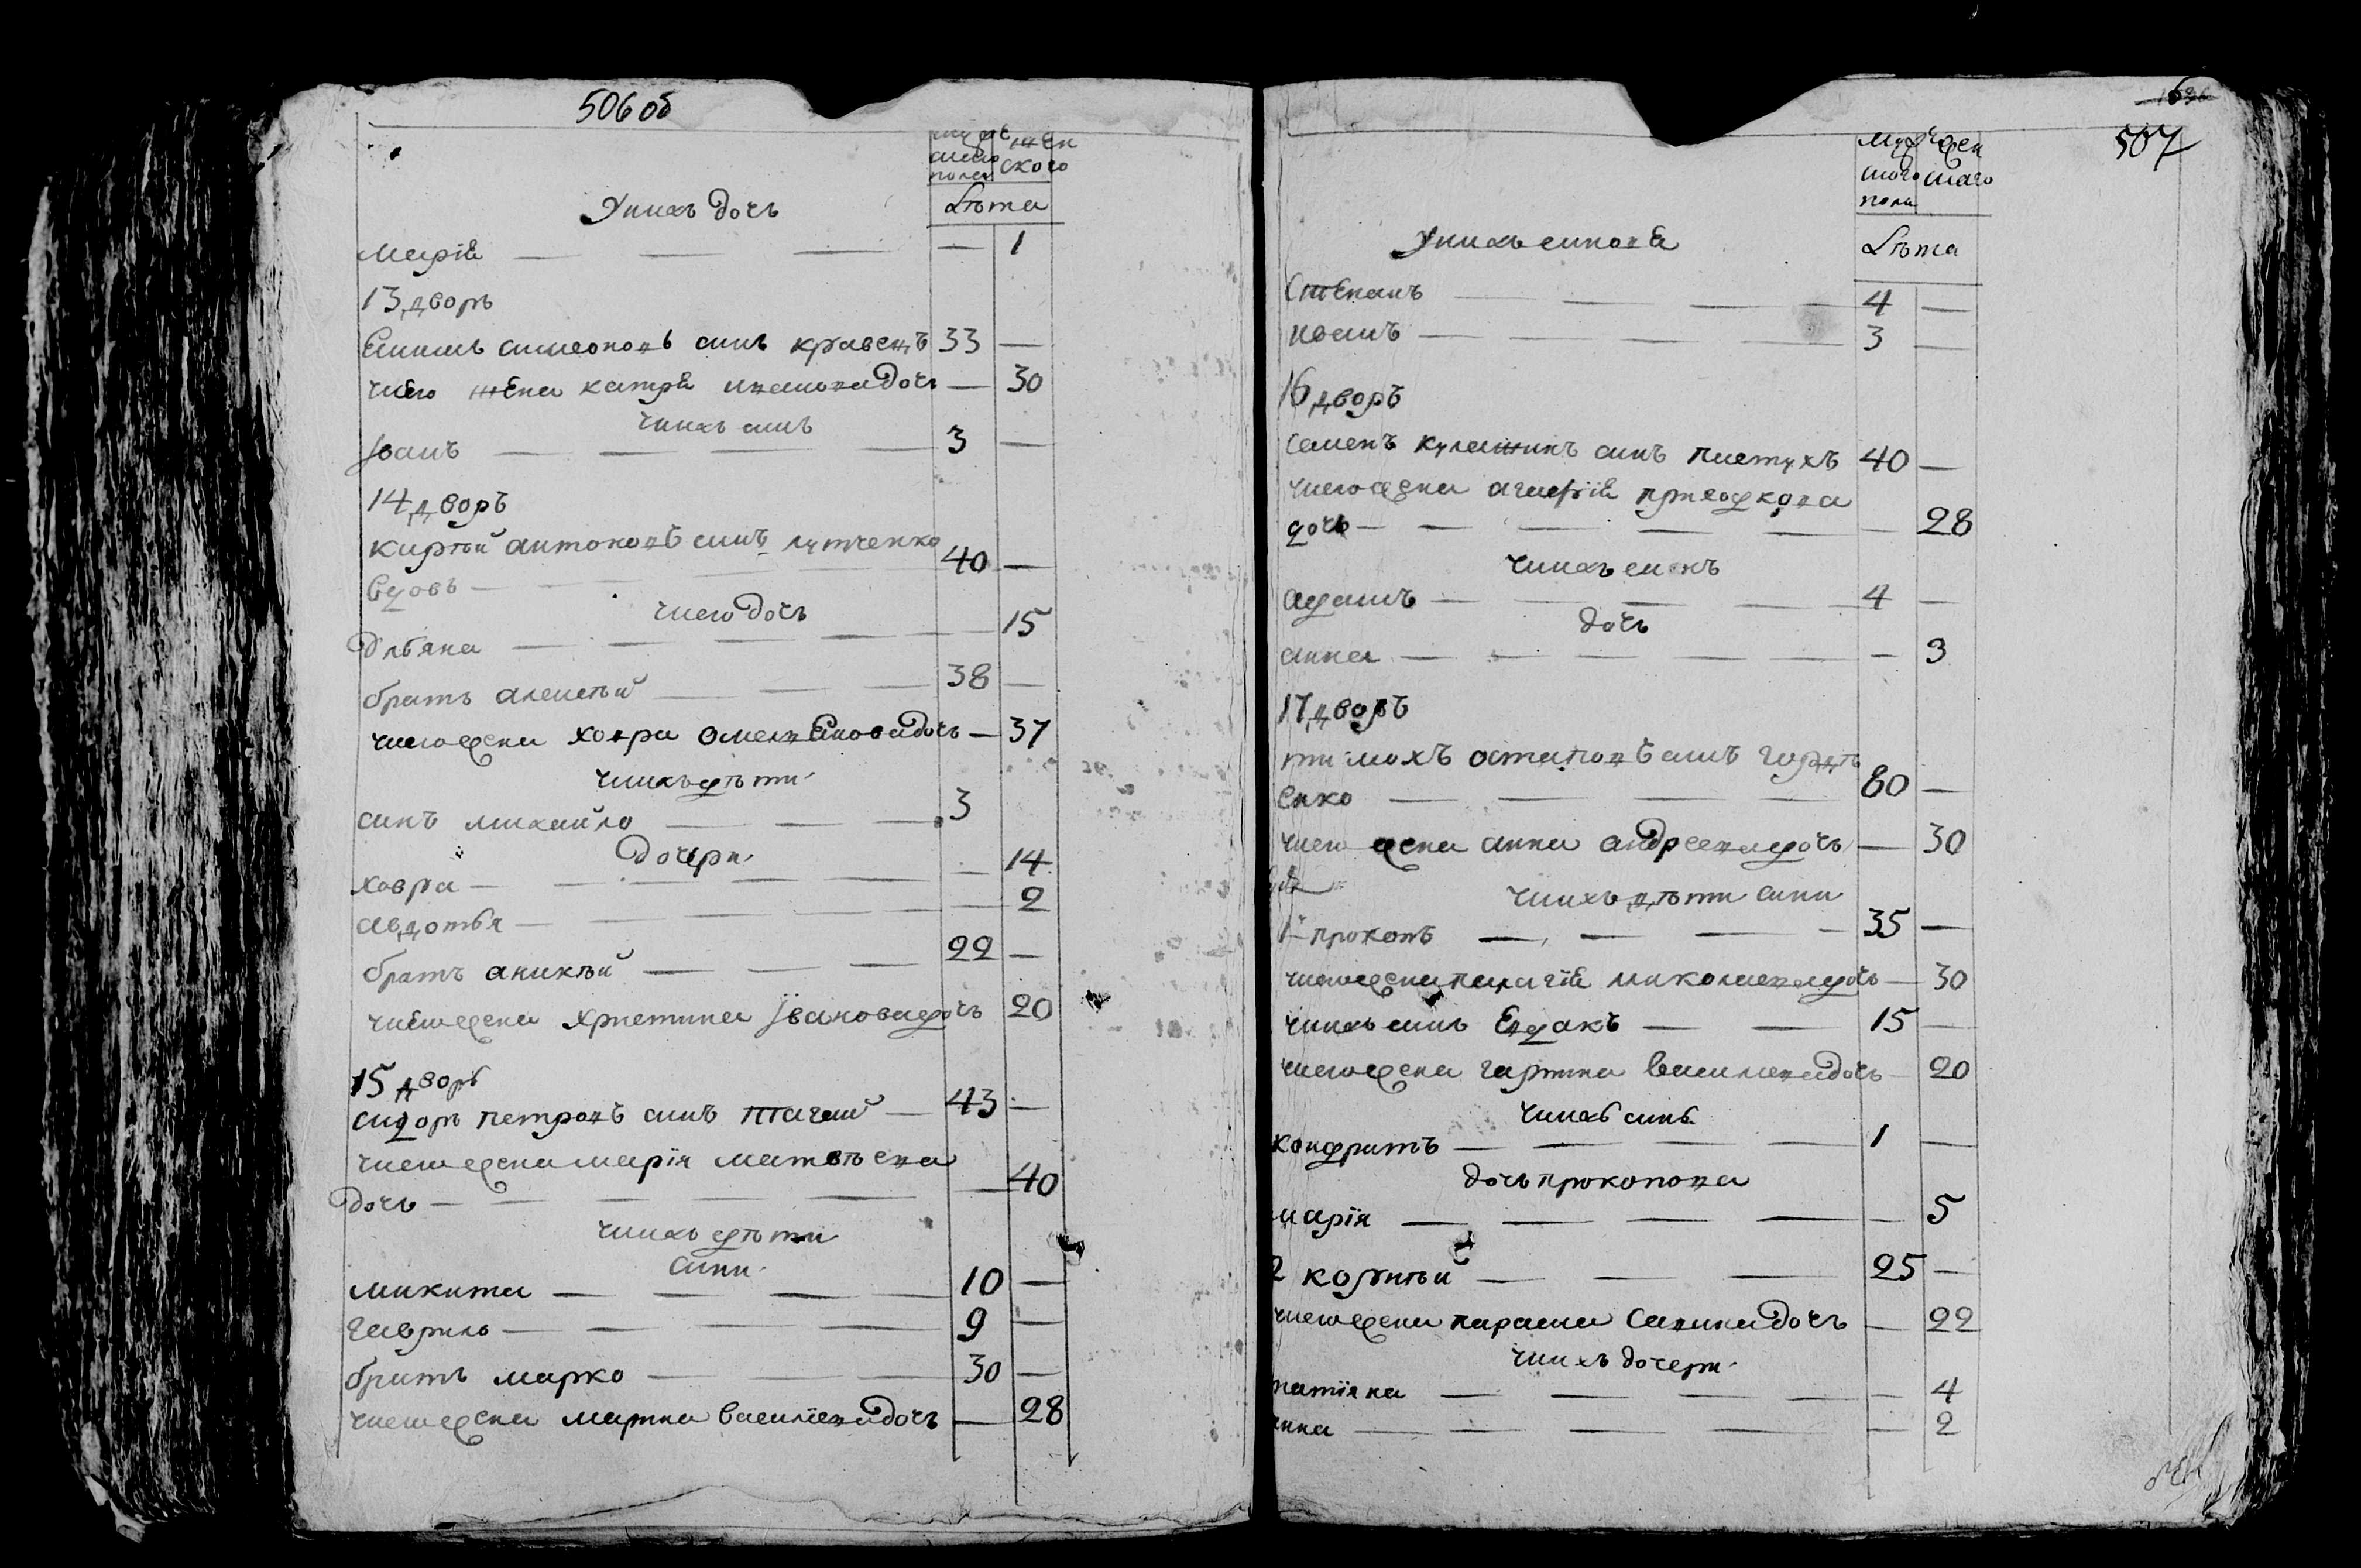 506 об
мужеска пола
женского
Лѣта
У нихъ дочь
Марія — 1
13 дворъ
симеоновъ синъ кравецъ 33 —
У него жена катря дочь — 30
У нихъ синъ
Іванъ 3 —
14 дворъ
антоновъ синъ лутченко
вдовъ 40 —
У него дочь
Ульяна — 15
братъ алексѣй 38 —
У него жена ховра омеляновадочь — 37
У нихъ дѣти
синъ михайло 3
дочери
ховра — 14
авдотья — 2
братъ аникѣй 22 —
У него жена христина Івановадочь 20
15 дворъ
сидоръ петровъ синъ 43 —
У него жена марія матвѣева
дочь — 40
У нихъ дѣти
сини
микита 10 —
гаврило 9 —
братъ марко 30 —
У него жена марина василевадочь — 28
507
мужского пола
женского
Лѣта
У нихъ синове
Степанъ 4 —
иванъ 3 —
16 дворъ
семенъ синъ пистухъ 40 —
У него жена агафія
дочь — 28
У нихъ синъ
адамъ 4 —
дочь
анна — 3
17 дворъ
тимохъ остаповъ синъ гордѣ
енко 60 —
У него жена анна андреевадочь — 30
У нихъ дѣти сини
1 прокопъ 35 —
У него жена пелагія миколаевадочь — 30
У нихъ синъ 15 —
У него жена василевадочь 20
У нихъ синъ
кондратъ 1 —
дочь прокопова
марія — 5
2 корнѣй 25 —
У него жена параска савинадочь — 22
У нихъ дочери
татіяна — 4
анна — 2